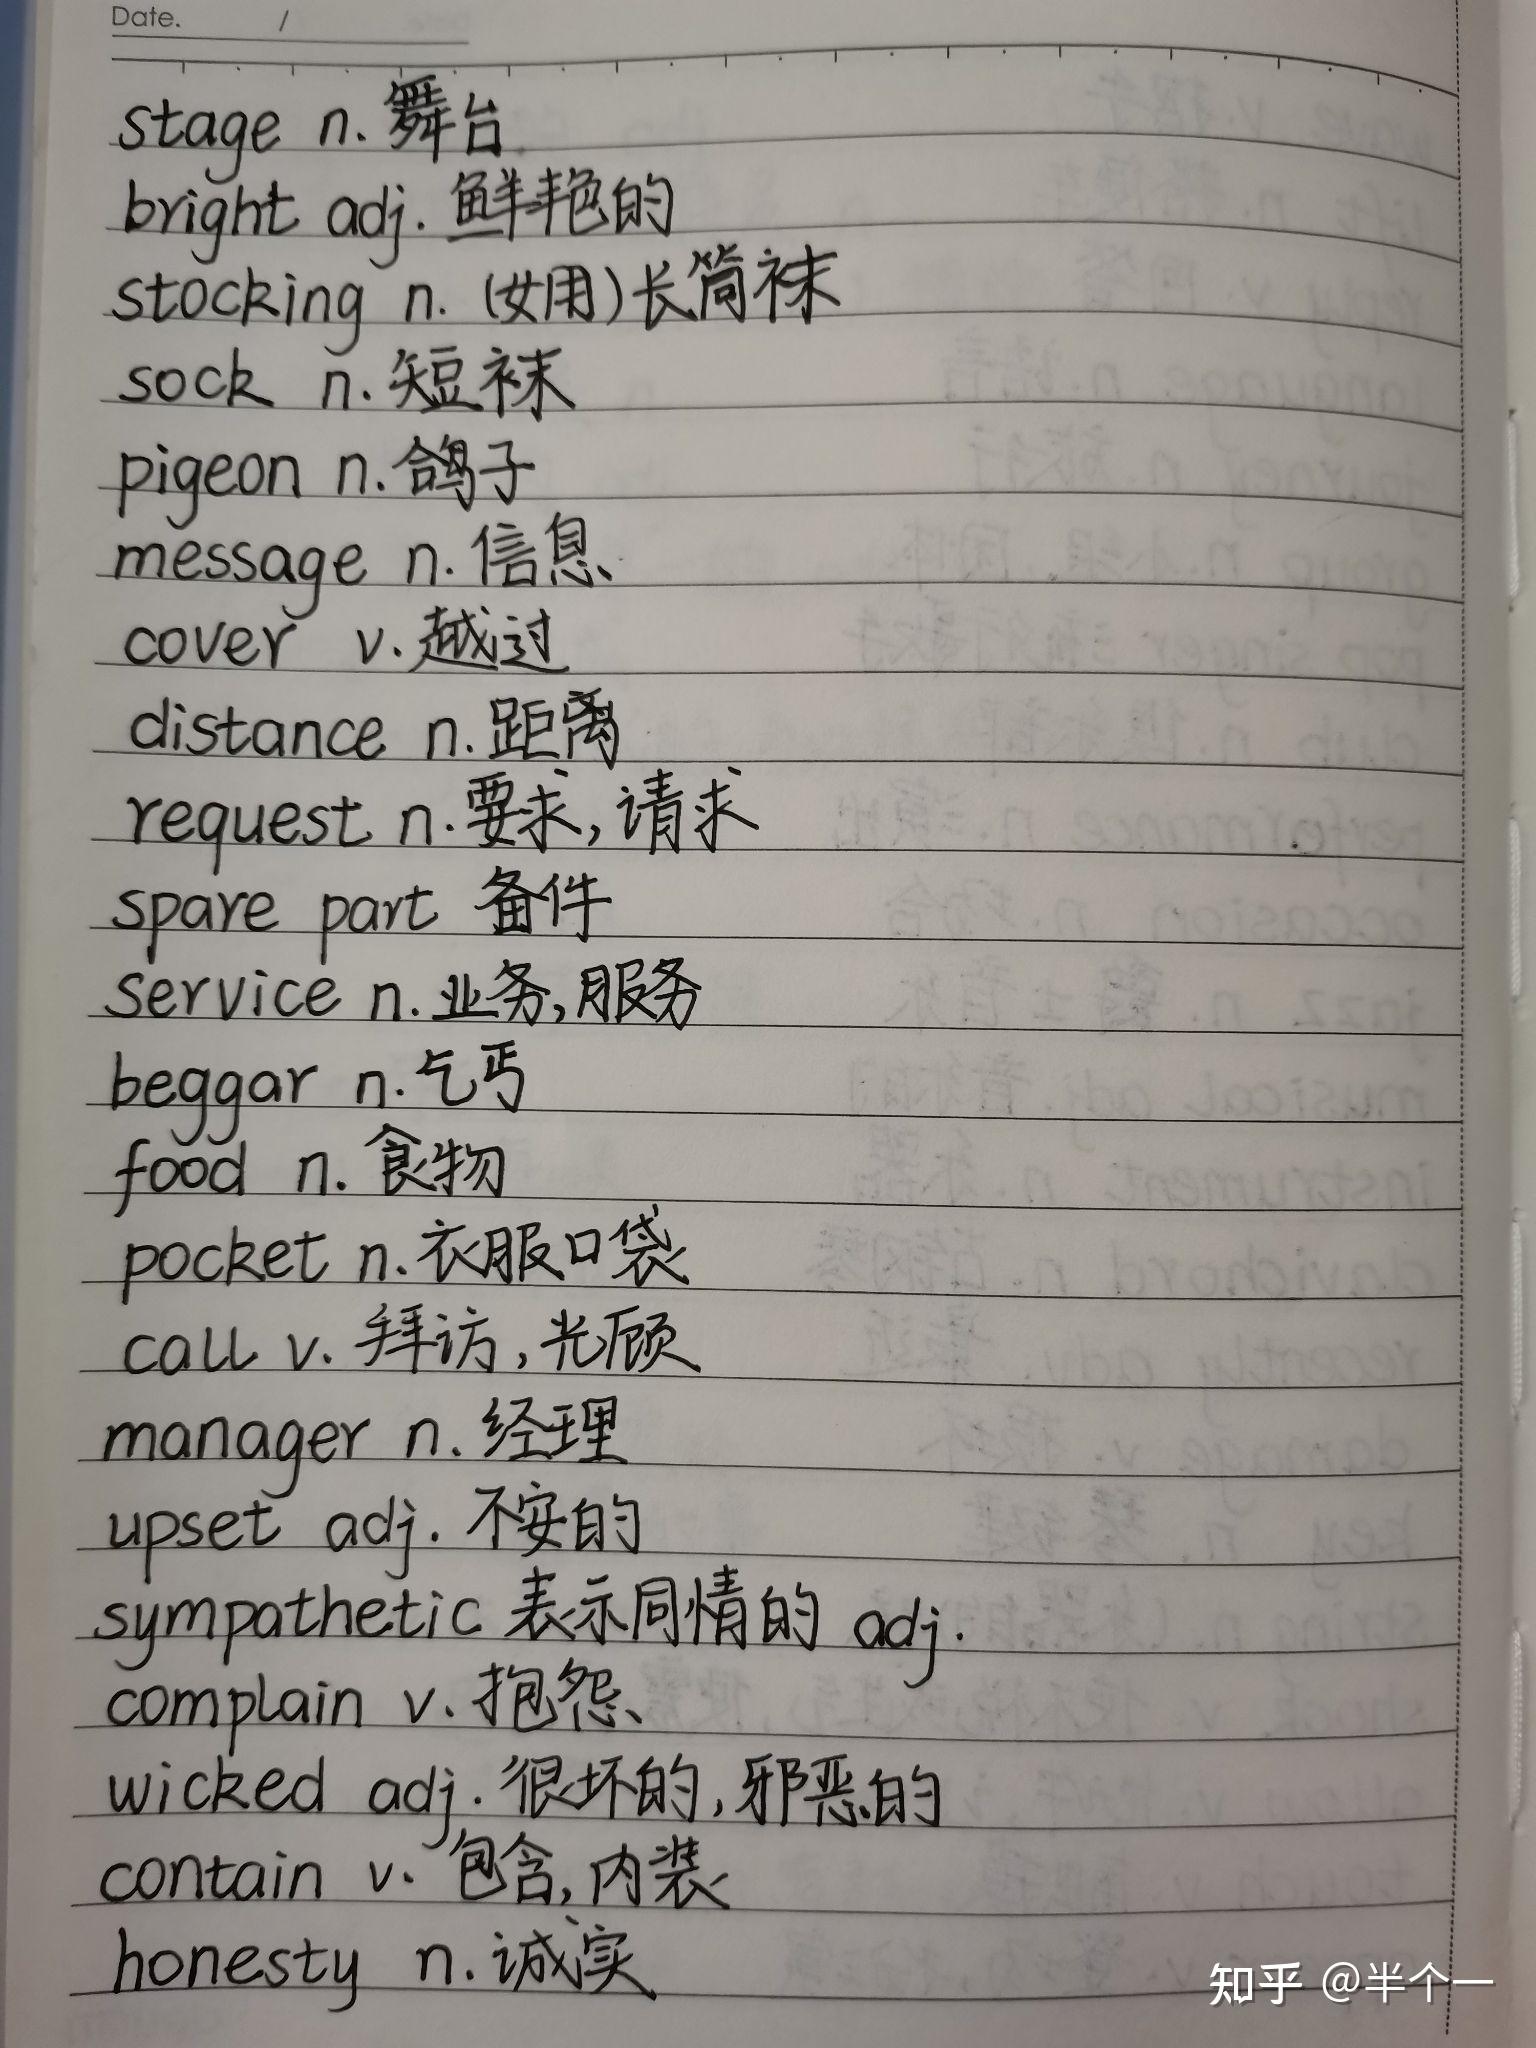 Date. /
stage n. 舞台
bright adj. 鲜艳的
stocking n. (女用)长筒袜
sock n. 短袜
pigeon n. 鸽子
message n. 信息
cover v. 越过
distance n. 距离
request n. 要求, 请求
spare part 备件
service n. 业务, 服务
beggar n. 乞丐
food n. 食物
pocket n. 衣服口袋
call v. 拜访, 光顾
manager n. 经理
upset adj. 不安的
sympathetic 表示同情的 adj.
complain v. 抱怨
wicked adj. 很坏的, 邪恶的
contain v. 包含, 内装
honesty n. 诚实
知乎 @半个一